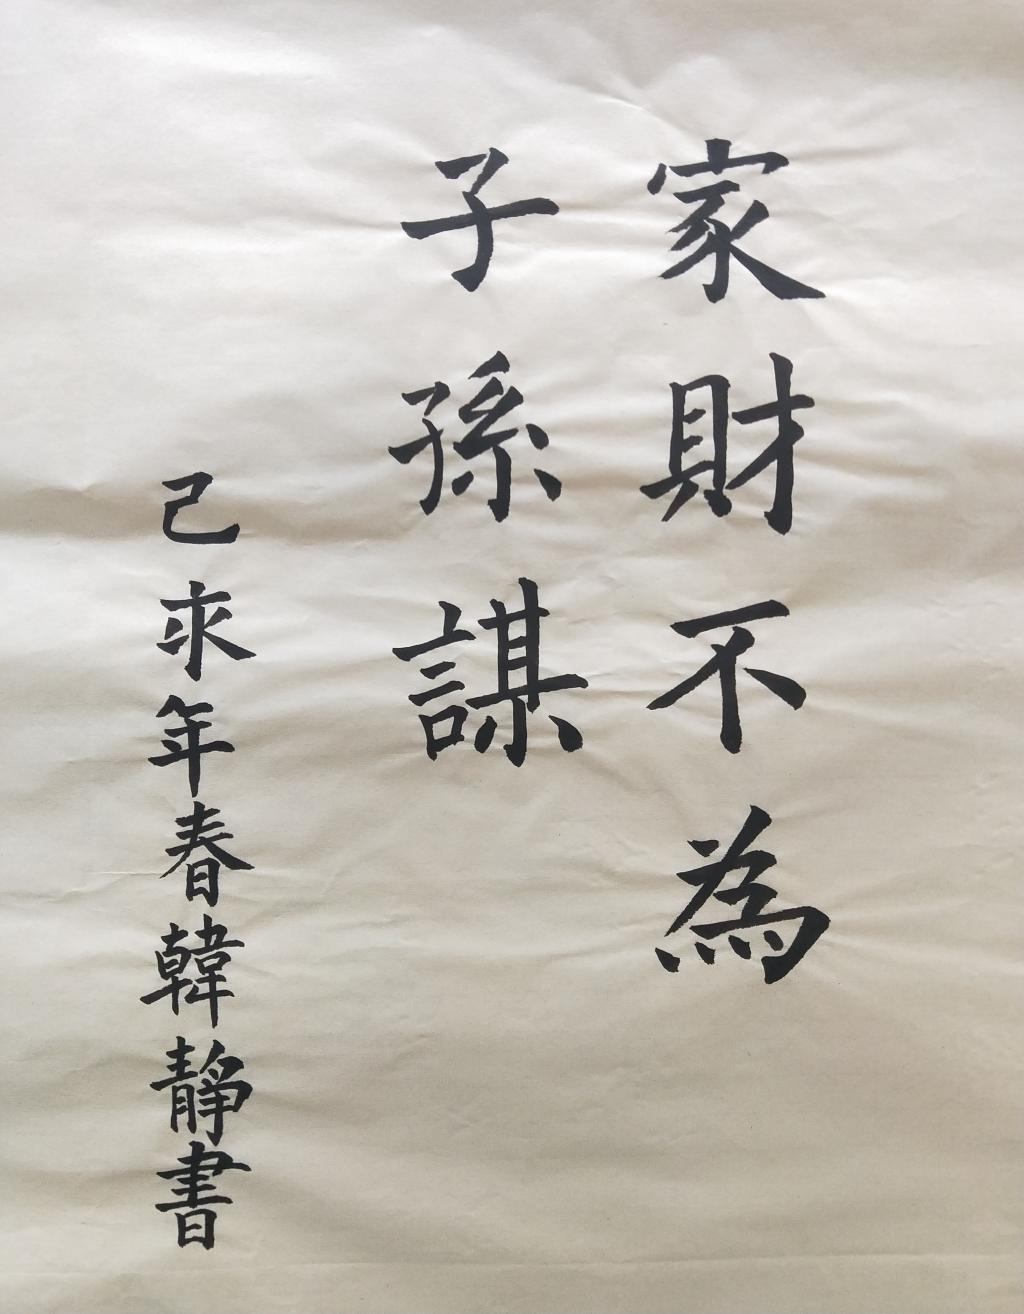 家財不為
子孫謀
己亥年春韓靜書